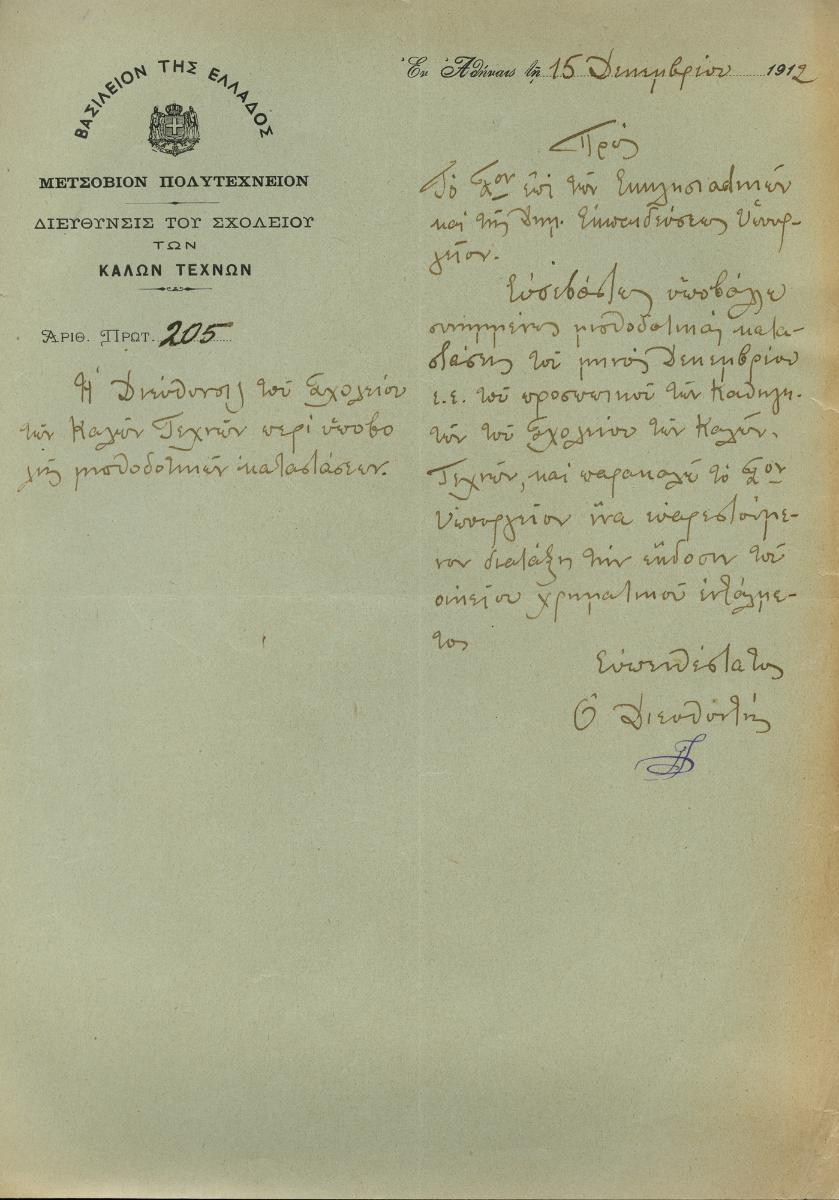 ΒΑΣΙΛΕΙΟΝ ΤΗΣ ΕΛΛΑΔΟΣ
ΜΕΤΣΟΒΙΟΝ ΠΟΛΥΤΕΧΝΕΙΟΝ
ΔΙΕΥΘΥΝΣΙΣ ΤΟΥ ΣΧΟΛΕΙΟΥ
ΤΩΝ
ΚΑΛΩΝ ΤΕΧΝΩΝ
ΑΡΙΘ. ΠΡΩΤ. 205
Ἡ Διεύθυνσις τοῦ Σχολείου
τῶν Καλῶν Τεχνῶν περὶ ὑποβο
λῆς μισθοδοτικῶν καταστάσεων.
Ἐν Ἀθήναις τῇ 15 Δεκεμβρίου 1912
Πρὸς
Τὸ Σ<sup>ον</sup> ἐπὶ τῶν Ἐκκλησιαστικῶν
καὶ τῆς Δημ. Ἐκπαιδεύσεως Ὑπουρ-
γεῖον.
Εὐσεβάστως ὑποβάλλω
συνημμένως μισθοδοτικὰς κατα-
στάσεις τοῦ μηνὸς Δεκεμβρίου
ἐ.ἔ. τοῦ προσωπικοῦ τῶν Καθηγη-
τῶν τοῦ Σχολείου τῶν Καλῶν
Τεχνῶν, καὶ παρακαλῶ τὸ Σ<sup>ον</sup>
Ὑπουργεῖον ἵνα εὐαρεστούμε-
νον διατάξῃ τὴν ἔκδοσιν τοῦ
οἰκείου χρηματικοῦ ἐντάλμα-
τος
Εὐπειθέστατος
Ὁ Διευθυντής